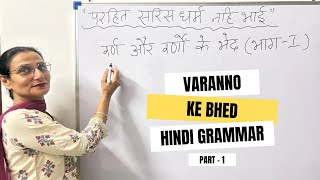 "परहित सरिस धर्म नहि भाई"
वर्ण और वर्णों के भेद (भाग-I)
VARANNO
KE BHED
HINDI GRAMMAR
PART - 1